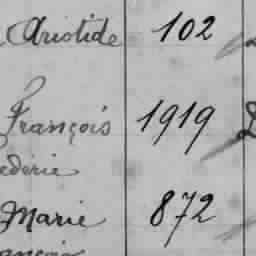 Aristide 102
François 1919
Marie 872